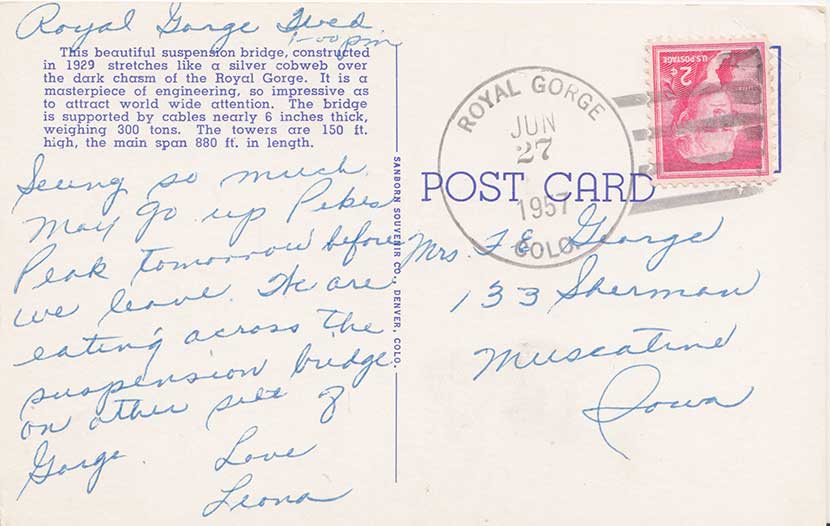 Royal Gorge Wed
1-00 pm
This beautiful suspension bridge, constructed
in 1929 stretches like a silver cobweb over
the dark chasm of the Royal Gorge. It is a
masterpiece of engineering, so impressive as
to attract world wide attention. The bridge
is supported by cables nearly 6 inches thick,
weighing 300 tons. The towers are 150 ft.
high, the main span 880 ft. in length.
Seeing so much.
May go up Pikes
Peak tomorrow before
we leave. We are
eating across the
suspension bridge
on other side of
Gorge.
Love
Leona
SANBORN SOUVENIR CO., DENVER, COLO.
POST CARD
ROYAL GORGE
JUN
27
1957
COLO.
U.S. POSTAGE
2¢
Mrs. F E George
133 Sherman
Muscatine
Iowa